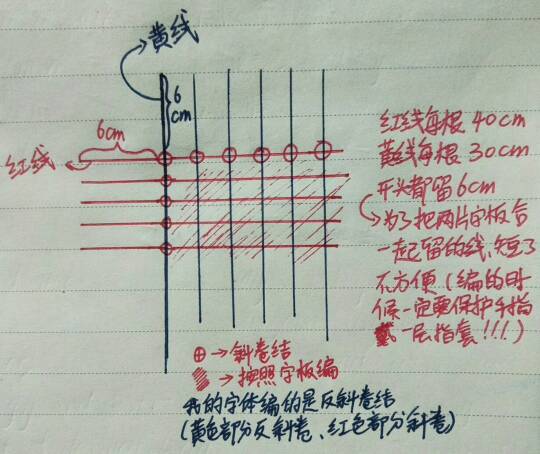 黄线
6
cm
6cm
红线
红线每根 40cm
黄线每根 30cm
开头都留6cm
为了把两片字板合
一起留的线、短了
不方便(编的时
候一定要保护手指
戴一层指套!!!)
⊕→斜卷结
→按照字板编
我的字体编的是反斜卷结
(黄色部分反斜卷、红色部分斜卷)